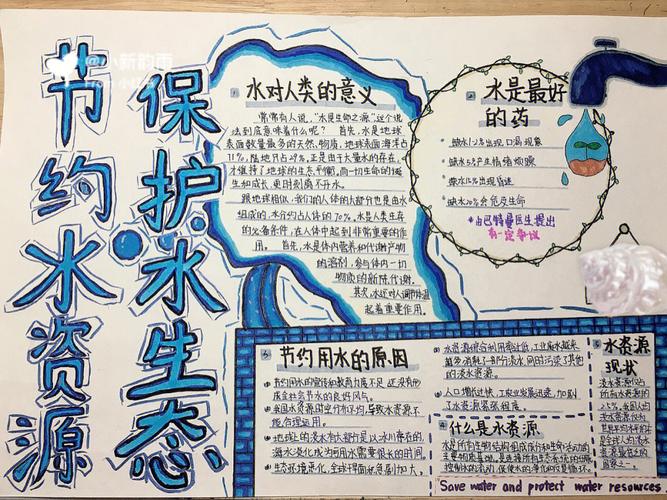 节约水资源
保护水生态
@小新韵雨
水对人类的意义
常常有人说，“水是生命之源”这个说
法到底意味着什么呢？ 首先，水是地球
表面数量最多的天然物质，地球表面海洋占
71%，陆地只占29%，正是由于大量水的存在，
才维持了地球的生态平衡，而一切生命的诞
生和成长，更时刻离不开水。
跟地球相似，我们的人体的大部分也是由水
组成的，水分约占人体的70%。水是人类生存
的必备条件，在人体中起到非常重要的作
用。 首先，水是体内营养和代谢产物
的溶剂，参与体内一切
物质的新陈代谢。
其次，水还对人调节体温
起着重要作用。
水是最好
的药
缺水1-2%出现口渴现象
缺水5%产生情绪烦躁
缺水15%出现昏迷
缺水20%会危及生命
*由巴特曼医生提出
有一定争议
节约用水的原因
节约用水的宣传和教育力度不足，还没有形
成全社会节水的良好风气。
我国水资源的空间分布不均，导致水资源不
能合理运用。
地球上的淡水有大部分是以冰川存在的
海水淡化成为饮用水需要很长的时间。
生态环境恶化，全球栖面积急剧加大，
水资源综合利用率过低，工业废水越来
越多消耗了一部分淡水同时污染了其他
的淡水资源。
人口增长过快，工农业发展迅速，加剧
了水资源紧张程度。
什么是水资源
水是所有生物结构组成成份和生命活动的
主要物质基础，是连接所有生态系统的纽带
水资源
现状
淡水资源仅占
所有水资源的
2.5%，我国人均
Save water and protect water resources